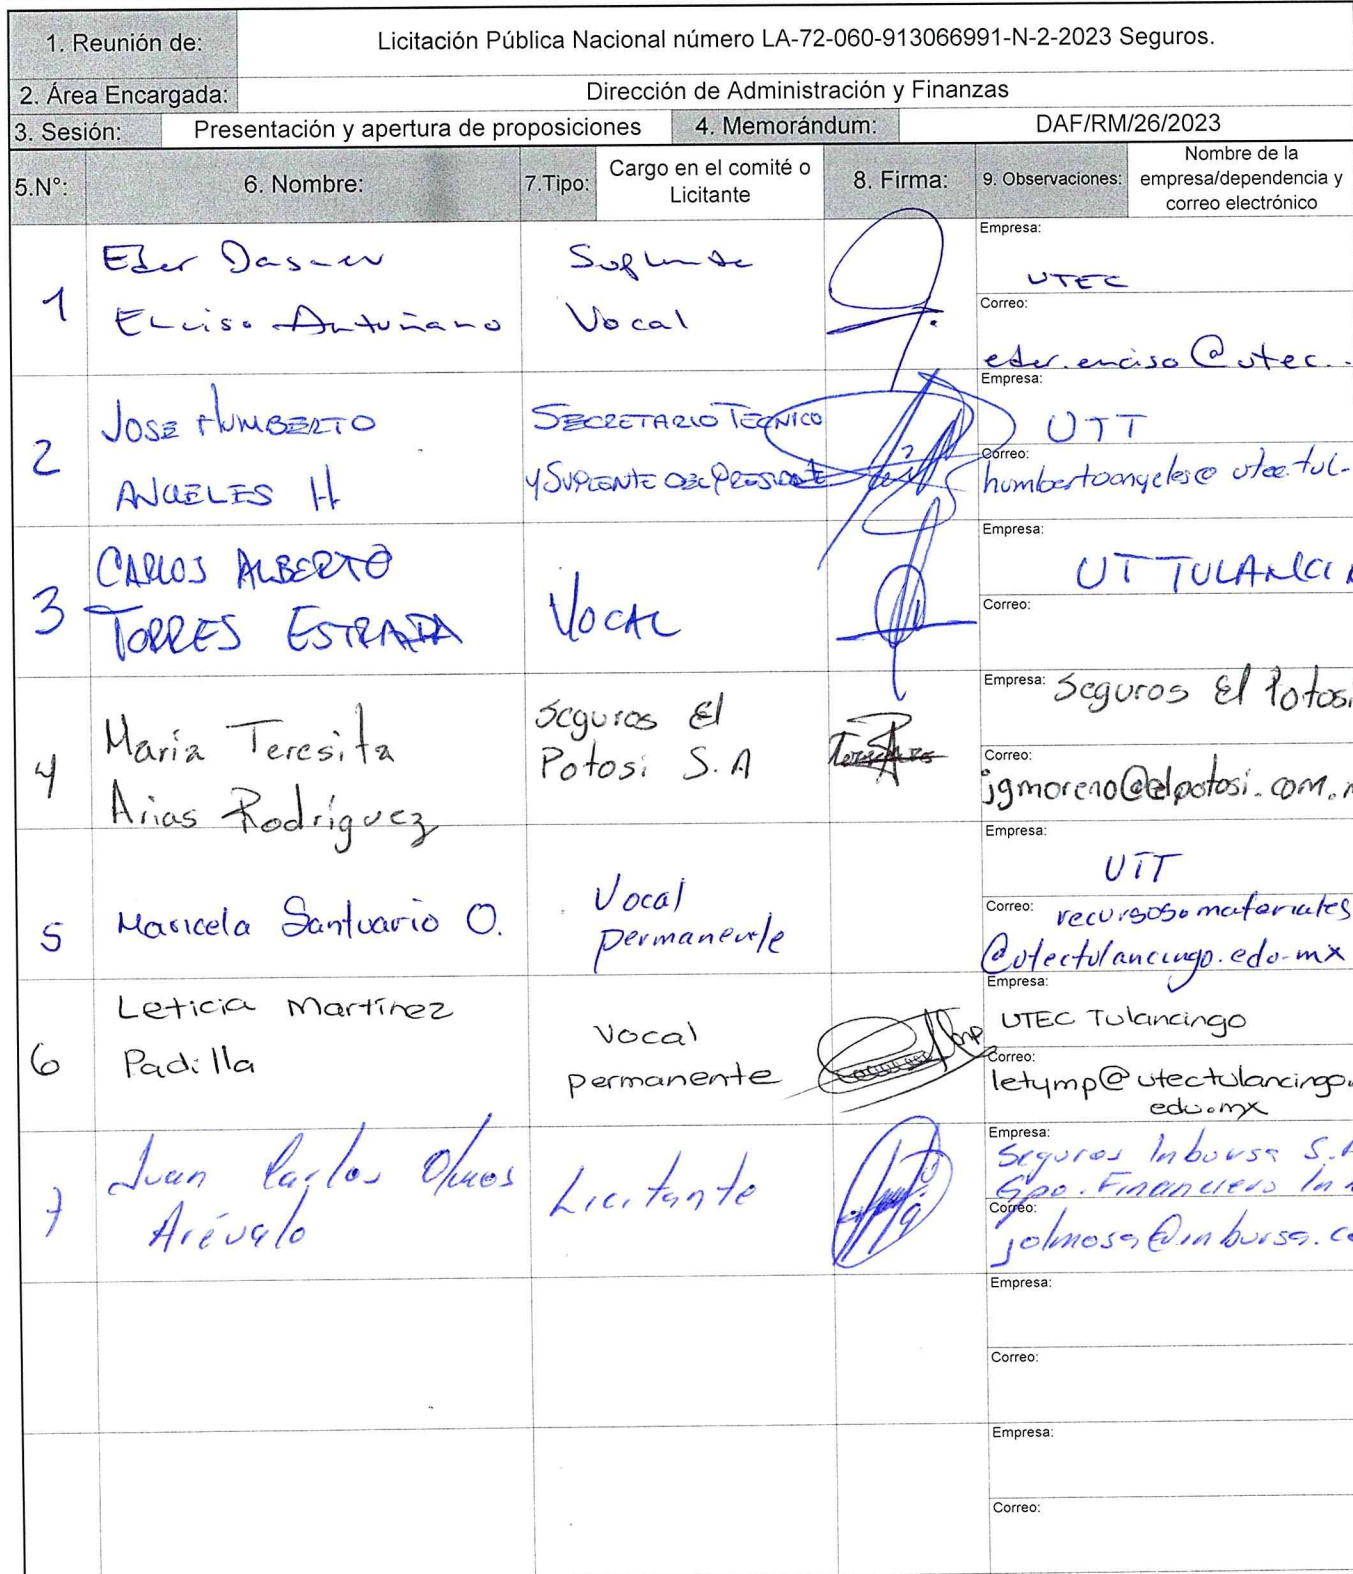 1. Reunión de: Licitación Pública Nacional número LA-72-060-913066991-N-2-2023 Seguros.
2. Área Encargada: Dirección de Administración y Finanzas
3. Sesión: Presentación y apertura de proposiciones 4. Memorándum: DAF/RM/26/2023
5.N°: 6. Nombre: 7.Tipo: Cargo en el comité o Licitante 8. Firma: 9. Observaciones: Nombre de la empresa/dependencia y correo electrónico
1
Eder
Enciso Antuñano
Suplente
Vocal
Empresa:
UTEC
Correo:
eder.enciso@utec.
2
JOSE HUMBERTO
ANGELES H
SECRETARIO TECNICO
Y SUPLENTE DEL PRESIDENTE
Empresa:
UTT
Correo:
humbertoangeles@utectul-
3
CARLOS ALBERTO
TORRES ESTRADA
VOCAL
Empresa:
UT TULANCI
Correo:
4
María Teresita
Arias Rodríguez
Seguros El
Potosi S.A
Empresa: Seguros El Potosi
Correo:
jgmoreno@elpotosi.com.
5
Maricela Santuario O.
Vocal
permanente
Empresa:
UTT
Correo: recursosomateriales
@utectulancingo.edo.mx
6
Leticia Martínez
Padilla
Vocal
permanente
Empresa:
UTEC Tulancingo
Correo:
letymp@utectulancingo.
edu.mx
7
Juan Carlos Olmos
Arévalo
Licitante
Empresa:
Seguros Inbursa S.A
Gpo. Financiero In
Correo:
jolmosa@inbursa.co
Empresa:
Correo:
Empresa:
Correo: